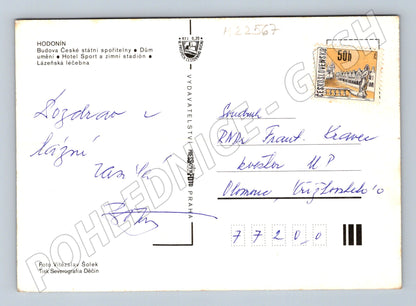 122567
HODONÍN
Budova České státní spořitelny • Dům
umění • Hotel Sport a zimní stadión •
Lázeňská léčebna
Pozdrav z
lázní
VYDAVATELSTVÍ
PRAHA
50h
ČESKOSLOVENSKO
Soudruh
RNDr Frant. Kravec
kvestor UP
Olomouc, Křížkovského 10
7 7 2 0 0
Foto Vítězslav Solek
Tisk Severografia Děčín
POHLEDNICE - GASH